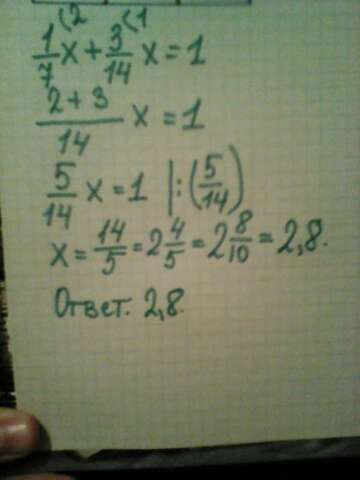 1/7 (2 x + 3/14 (1 x = 1
2+3/14 x = 1
5/14 x = 1 |:(5/14)
x = 14/5 = 2 4/5 = 2 8/10 = 2,8.
Ответ. 2,8.